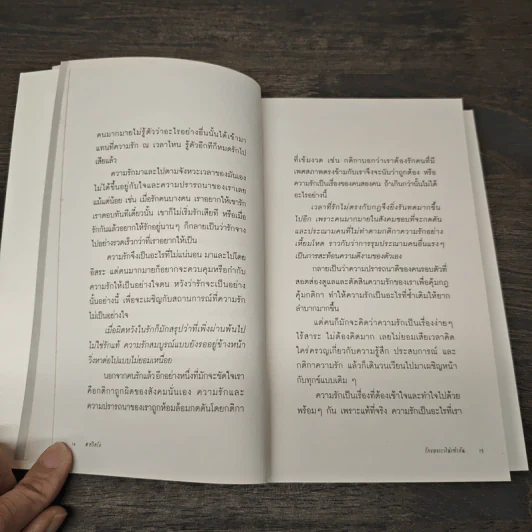 คนมากมายไม่รู้ตัวว่าอะไรอย่างอื่นนั้นได้เข้ามา
แทนที่ความรัก ณ เวลาไหน รู้ตัวอีกทีก็หมดรักไป
เสียแล้ว
ความรักมาและไปตามจังหวะเวลาของมันเอง
ไม่ได้ขึ้นอยู่กับใจและความปรารถนาของเราเลย
แม้แต่น้อย เช่น เมื่อรักคนบางคน เราอยากให้เขารัก
เราตอบทันทีที่เดี๋ยวนั้น เขาก็ไม่เริ่มรักเสียที หรือเมื่อ
รักกันแล้วอยากให้รักอยู่นานๆ ก็กลายเป็นว่ารักจาง
ไปอย่างรวดเร็วกว่าที่เราอยากให้เป็น
ความรักจึงเป็นอะไรที่ไม่แน่นอน มาและไปโดย
อิสระ แต่คนมากมายก็อยากจะควบคุมหรือกำกับ
ความรักให้เป็นอย่างใจตน หวังว่ารักจะเป็นอย่าง
นั้นอย่างนี้ เพื่อจะเผชิญกับสถานการณ์ที่ความรัก
ไม่เป็นอย่างใจ
เมื่อผิดหวังในรักก็มักสรุปว่าที่เพิ่งผ่านพ้นไป
ไม่ใช่รักแท้ ความรักสมบูรณ์แบบยังรออยู่ข้างหน้า
วิ่งหาต่อไปแบบไม่ยอมเหนื่อย
นอกจากคนรักแล้วอีกอย่างหนึ่งที่มักจะขัดใจเรา
คือกติกาถูกผิดของสังคมนั่นเอง ความรักและ
ความปรารถนาของเราถูกห้อมล้อมกดดันโดยกติกา
ที่เข้มงวด เช่น กติกาบอกว่าเราต้องรักคนที่มี
เพศสภาพตรงข้ามกับเราจึงจะนับว่าถูกต้อง หรือ
ความรักเป็นเรื่องของคนสองคน ถ้าเกินกว่านั้นไม่ได้
อะไรอย่างนี้
เวลาที่รักไม่ตรงกับกฎจึงยิ่งรันทดมากขึ้น
ไปอีก เพราะคนมากมายในสังคมชอบที่จะกดดัน
และประณามคนที่ไม่ทำตามกติกาความรักอย่าง
เหี้ยมโหด ราวกับว่าการรุมประณามคนอื่นแรงๆ
เป็นการสะท้อนความดีงามของตัวเอง
กลายเป็นว่าความปรารถนาดีของคนรอบตัวที่
สอดส่องดูแลและตัดสินความรักของเราเพื่อคุ้มกฎ
คุ้มกติกา ทำให้ความรักเป็นอะไรที่ช้ำเติมให้ยาก
ลำบากมากขึ้น
แต่คนก็มักจะคิดว่าความรักเป็นเรื่องง่ายๆ
ไร้สาระ ไม่ต้องคิดมาก เลยไม่ยอมเสียเวลาคิด
ใคร่ครวญเกี่ยวกับความรู้สึก ประสบการณ์ และ
กติกาความรัก แล้วก็เดินวนเวียนไปมาเผชิญหน้า
กับทุกข์แบบเดิม ๆ
ความรักเป็นเรื่องที่ต้องเข้าใจและทำใจไปด้วย
พร้อมๆ กัน เพราะแท้ที่จริง ความรักเป็นอะไรที่เรา